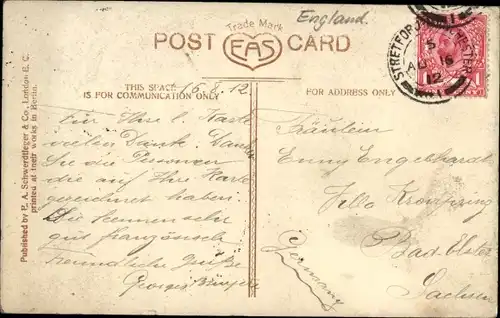 England.
Trade Mark
POST CARD
EAS
STRETFORD MANCHESTER
5
AU 16
12
THIS SPACE
IS FOR COMMUNICATION ONLY
16.8.12
FOR ADDRESS ONLY
Für Ihre l. Karte
vielen Dank.
Sie die Personen
die auf Ihre Karte
gezeichnet haben.
Sie kennen sehr
gut französisch
freundliche Grüße
Georges
Fräulein
Enny Engelhardt
Villa Kronprinz
Bad. Elster
Sachsen
(Germany)
Published by E. A. Schwerdtfeger & Co., London E. C.
printed at their works in Berlin.